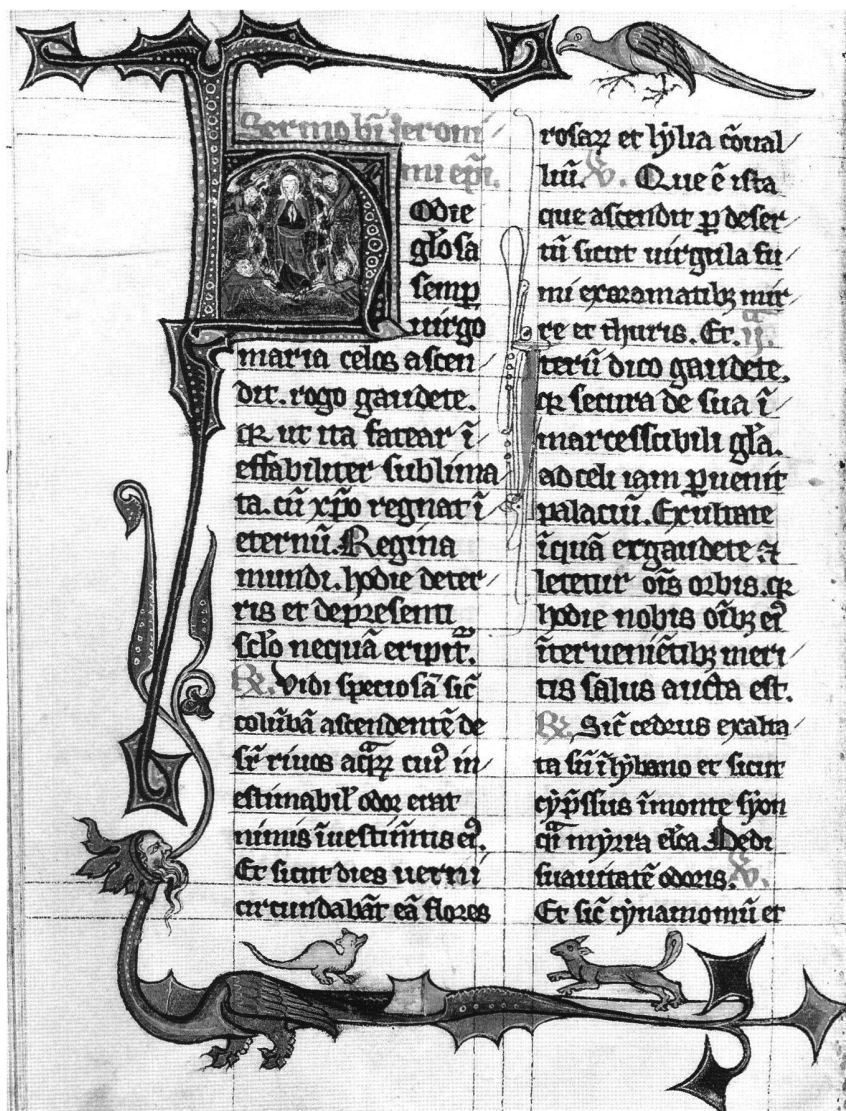 Sermo bi ieroni
mi epi.
odie
glosa
semp
uirgo
maria celos ascen
dit. rogo gaudete.
qr ut ita fatear i
effabiliter sublima
ta. cū xpo regnat ī
eternū. Regina
mundi. hodie deter
ris et depresenti
sclo nequā eripit.
R. Vidi speciosā sic
colūbā ascendentē de
sr riuos aqrz cui in
estimabil odor erat
nimis ī uestimtis ei.
Et sicut dies uerni
circundabāt eā flores
rosarz et lylia cōual
liū. V. Que ē ista
que ascendit p deser
tū sicut uirgula fu
mi exaromatibz mir
re et thuris. Et. ij.
terū dico gaudete.
qr secura de sua ī
marcessibili gla.
ad celi iam puenit
palaciū. Exultate
īquā et gaudete et
letetur ois orbis. qr
hodie nobis oibz ei
īteruenietibz meri
tis salus aucta est.
R. Sic cedrus exalta
ta sū ī lybano et sicut
cypssus ī monte syon
qi myrra elca Dedi
suauitatē odoris. V.
Et sic cynamomū et